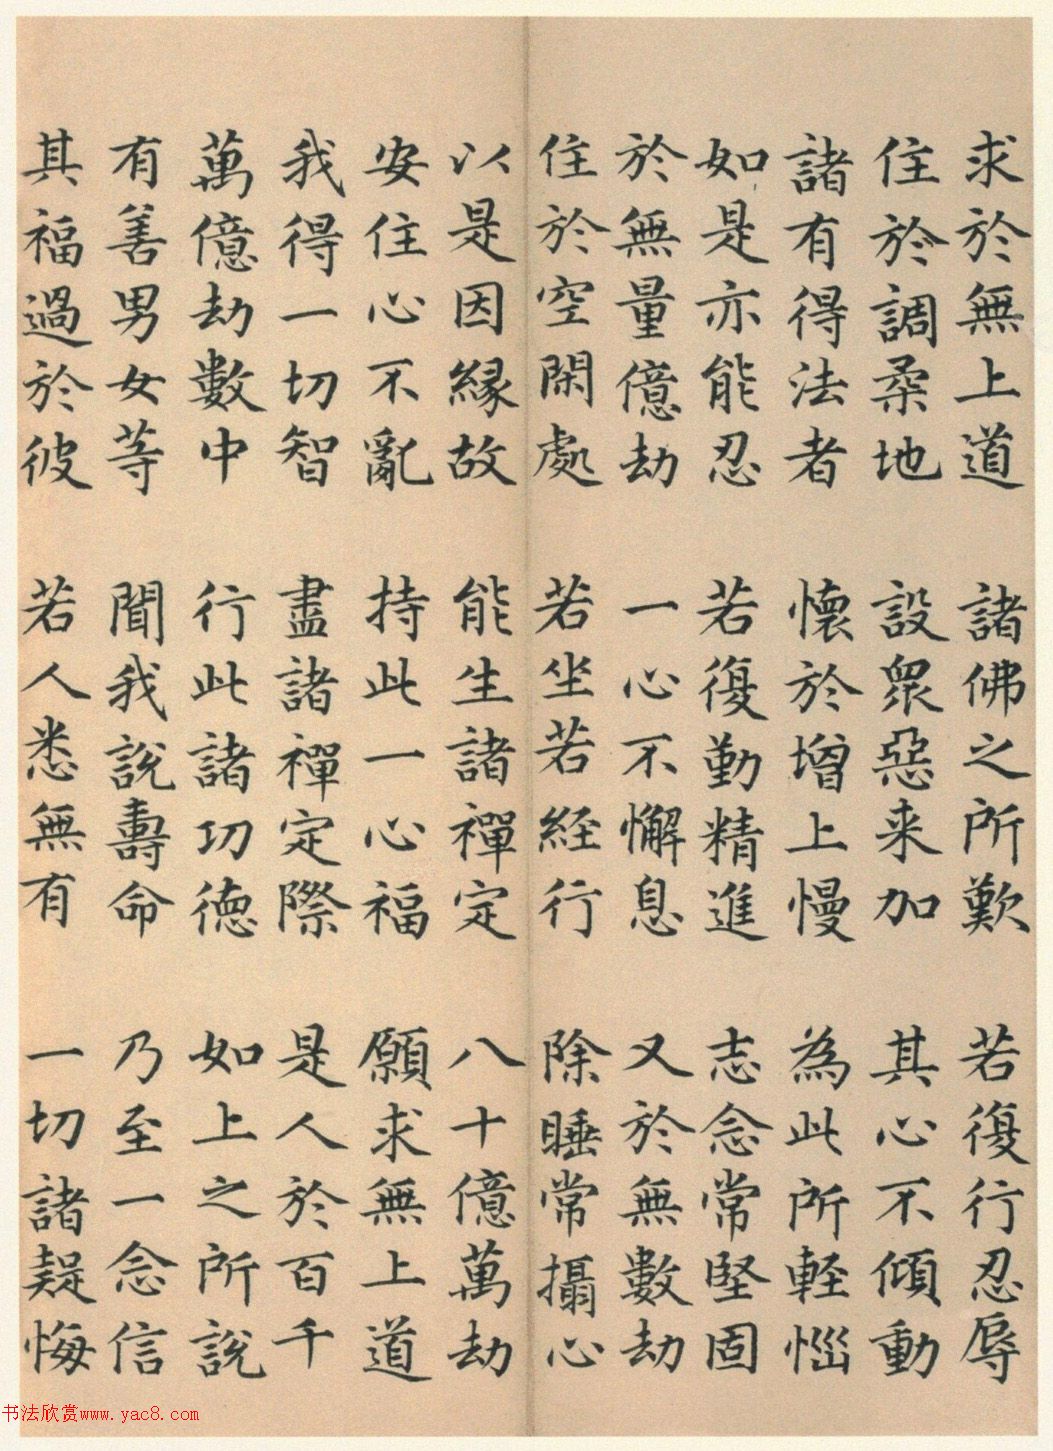 求於無上道 諸佛之所歎 若復行忍辱
住於調柔地 設衆惡来加 其心不傾動
諸有得法者 懐於增上慢 為此所軽惱
如是亦能忍 若復勤精進 志念常堅固
於無量億劫 一心不懈息 又於無數劫
住於空閑處 若坐若経行 除睡常攝心
以是因縁故 能生諸禪定 八十億萬劫
安住心不亂 持此一心福 願求無上道
我得一切智 盡諸禪定際 是人於百千
萬億劫數中 行此諸功德 如上之所說
有善男女等 聞我說壽命 乃至一念信
其福過於彼 若人悉無有 一切諸疑悔
书法欣赏www.yac8.com